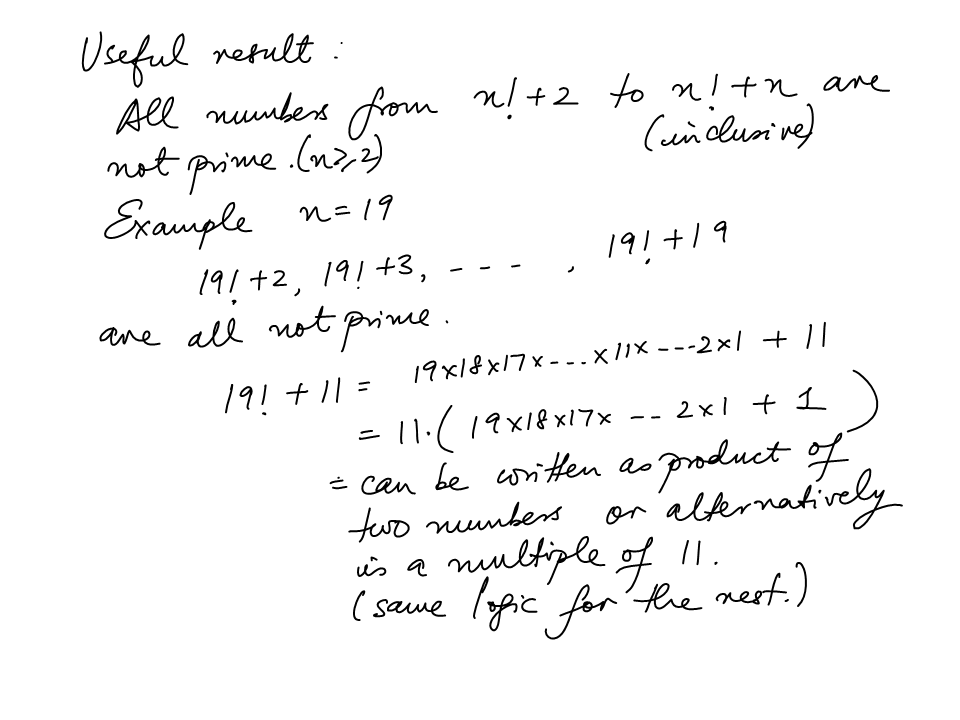 Useful result :
All numbers from n! + 2 to n! + n are
not prime. (n ≥ 2) (inclusive)
Example n = 19
19! + 2, 19! + 3, - - - , 19! + 19
are all not prime.
19! + 11 = 19×18×17×---×11×---2×1 + 11
= 11·( 19×18×17× -- 2×1 + 1 )
= can be written as product of
two numbers or alternatively
is a multiple of 11.
(same logic for the rest.)